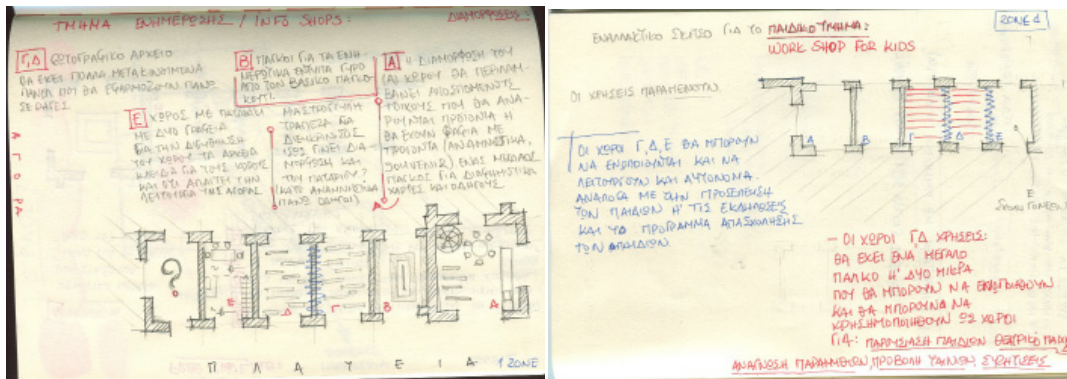 ΤΜΗΜΑ ΕΝΗΜΕΡΩΣΗΣ / INFO SHOPS:
ΔΙΑΜΟΡΦΩΣΕΙΣ:
Γ,Δ ΦΩΤΟΓΡΑΦΙΚΟ ΑΡΧΕΙΟ
ΘΑ ΕΧΕΙ ΠΟΛΛΑ ΜΕΤΑΚΙΝΟΥΜΕΝΑ
ΠΑΝΕΛ ΠΟΥ ΘΑ ΕΦΑΡΜΟΖΟΥΝ ΠΑΝΩ
ΣΕ ΡΑΓΕΣ
Β ΠΑΓΚΟΙ ΓΙΑ ΤΑ ΕΝΗ-
ΜΕΡΩΤΙΚΑ ΕΝΤΥΠΑ ΓΥΡΩ
ΑΠΟ ΤΟΝ ΒΑΣΙΚΟ ΠΑΓΚΟ-
ΚΟΥΤΙ.
Α Η ΔΙΑΜΟΡΦΩΣΗ ΤΟΥ
ΧΩΡΟΥ ΘΑ ΠΕΡΙΛΑΜ-
ΒΑΝΕΙ ΑΠΟΣΠΩΜΕΝΟΥΣ
ΤΟΙΧΟΥΣ ΠΟΥ ΘΑ ΑΝΑ-
ΡΟΥΝΤΑΙ ΠΡΟΪΟΝΤΑ Η
ΘΑ ΕΧΟΥΝ ΡΑΦΙΑ ΜΕ
ΠΡΟΪΟΝΤΑ (ΑΝΑΜΝΗΣΤΙΚΑ,
SOUVENIR) ΕΝΑΣ ΜΕΓΑΛΟΣ
ΠΑΓΚΟΣ ΓΙΑ ΔΙΑΦΗΜΙΣΤΙΚΑ
ΧΑΡΤΕΣ ΚΑΙ ΟΔΗΓΟΥΣ.
Ε ΧΩΡΟΣ ΜΕ
ΜΕ ΔΥΟ ΓΡΑΦΕΙΑ
ΓΙΑ ΤΗΝ ΔΙΕΥΘΥΝΣΗ
ΤΟΥ ΧΩΡΟΥ ΤΑ ΑΡΧΕΙΑ
ΚΛΕΙΔΙΑ ΓΙΑ ΤΟΥΣ ΧΩΡΟΥΣ
ΚΑΙ ΟΤΙ ΑΠΑΙΤΕΙ ΤΗΝ
ΛΕΙΤΟΥΡΓΙΑ ΤΗΣ ΑΓΟΡΑΣ
ΜΙΑ ΣΤΡΟΓΓΥΛΗ
ΤΡΑΠΕΖΑ ΓΙΑ
ΔΙΕΥΚΡΙΝΙΣΕΙΣ
ΙΣΩΣ ΓΙΝΕΙ ΔΙΑ-
ΜΟΡΦΩΣΗ ΚΑΙ
ΤΟΥ ΠΑΤΑΡΙΟΥ?
(ΚΑΤΩ ΑΝΑΜΝΗΣΤΙΚΑ
ΠΑΝΩ ΟΔΗΓΟΙ)
Α
ΑΓΟΡΑ
?
Ε Δ Γ Β Α
ΠΛΑΤΕΙΑ
1 ZONE
ZONE 1
ΕΝΑΛΛΑΚΤΙΚΟ ΣΚΙΤΣΟ ΓΙΑ ΤΟ ΠΑΙΔΙΚΟ ΤΜΗΜΑ:
WORK SHOP FOR KIDS
ΟΙ ΧΡΗΣΕΙΣ ΠΑΡΑΜΕΝΟΥΝ.
Α Β Γ Δ Ε
Ε
ΟΙ ΧΩΡΟΙ Γ,Δ,Ε ΘΑ ΜΠΟΡΟΥΝ
ΝΑ ΕΝΟΠΟΙΟΥΝΤΑΙ ΚΑΙ ΝΑ
ΛΕΙΤΟΥΡΓΟΥΝ ΚΑΙ ΑΥΤΟΝΟΜΑ.
ΑΝΑΛΟΓΑ ΜΕ ΤΗΝ ΠΡΟΣΕΛΕΥΣΗ
ΤΩΝ ΠΑΙΔΙΩΝ Η' ΤΙΣ ΕΚΔΗΛΩΣΕΙΣ
ΚΑΙ ΤΟ ΠΡΟΓΡΑΜΜΑ ΑΠΑΣΧΟΛΗΣΗΣ
ΤΩΝ ΠΑΙΔΙΩΝ.
- ΟΙ ΧΩΡΟΙ Γ,Δ ΧΡΗΣΕΙΣ:
ΘΑ ΕΧΕΙ ΕΝΑ ΜΕΓΑΛΟ
ΠΑΛΚΟ Η' ΔΥΟ ΜΙΚΡΑ
ΠΟΥ ΘΑ ΜΠΟΡΟΥΝ ΝΑ ΕΝΩΠΟΙΗΘΟΥΝ
ΚΑΙ ΘΑ ΜΠΟΡΟΥΝ ΝΑ
ΧΡΗΣΗΜΟΠΟΙΗΘΟΥΝ ΩΣ ΧΩΡΟΙ
ΓΙΑ: ΠΑΡΟΥΣΙΑΣΗ ΠΑΙΔΙΩΝ ΘΕΑΤΡΙΚΟ
ΑΝΑΓΝΩΣΗ ΠΑΡΑΜΥΘΙΩΝ, ΠΡΟΒΟΛΗ ΤΑΙΝΙΩΝ, ΣΥΖΗΤΗΣΕΙΣ